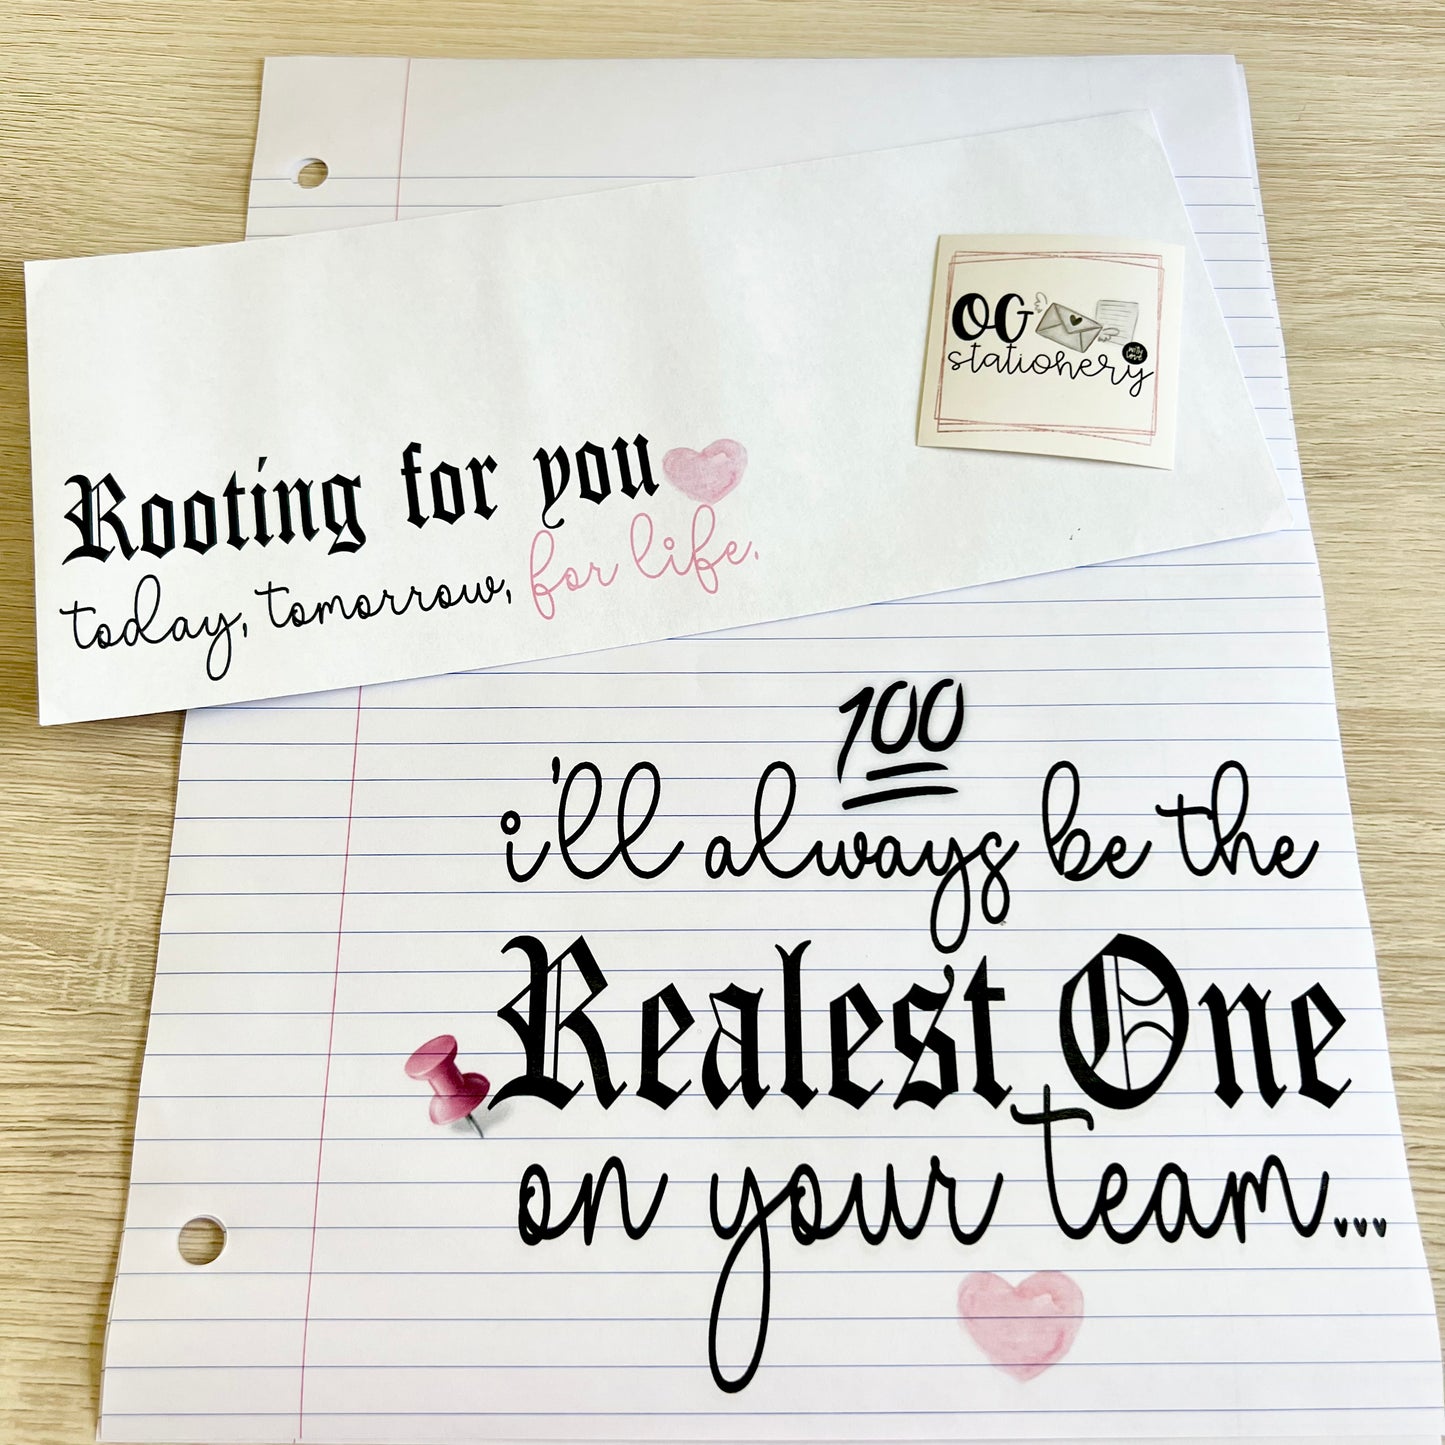 OG
stationery
with
love
Rooting for you
today, tomorrow, for life.
100
i'll always be the
Realest One
on your team...